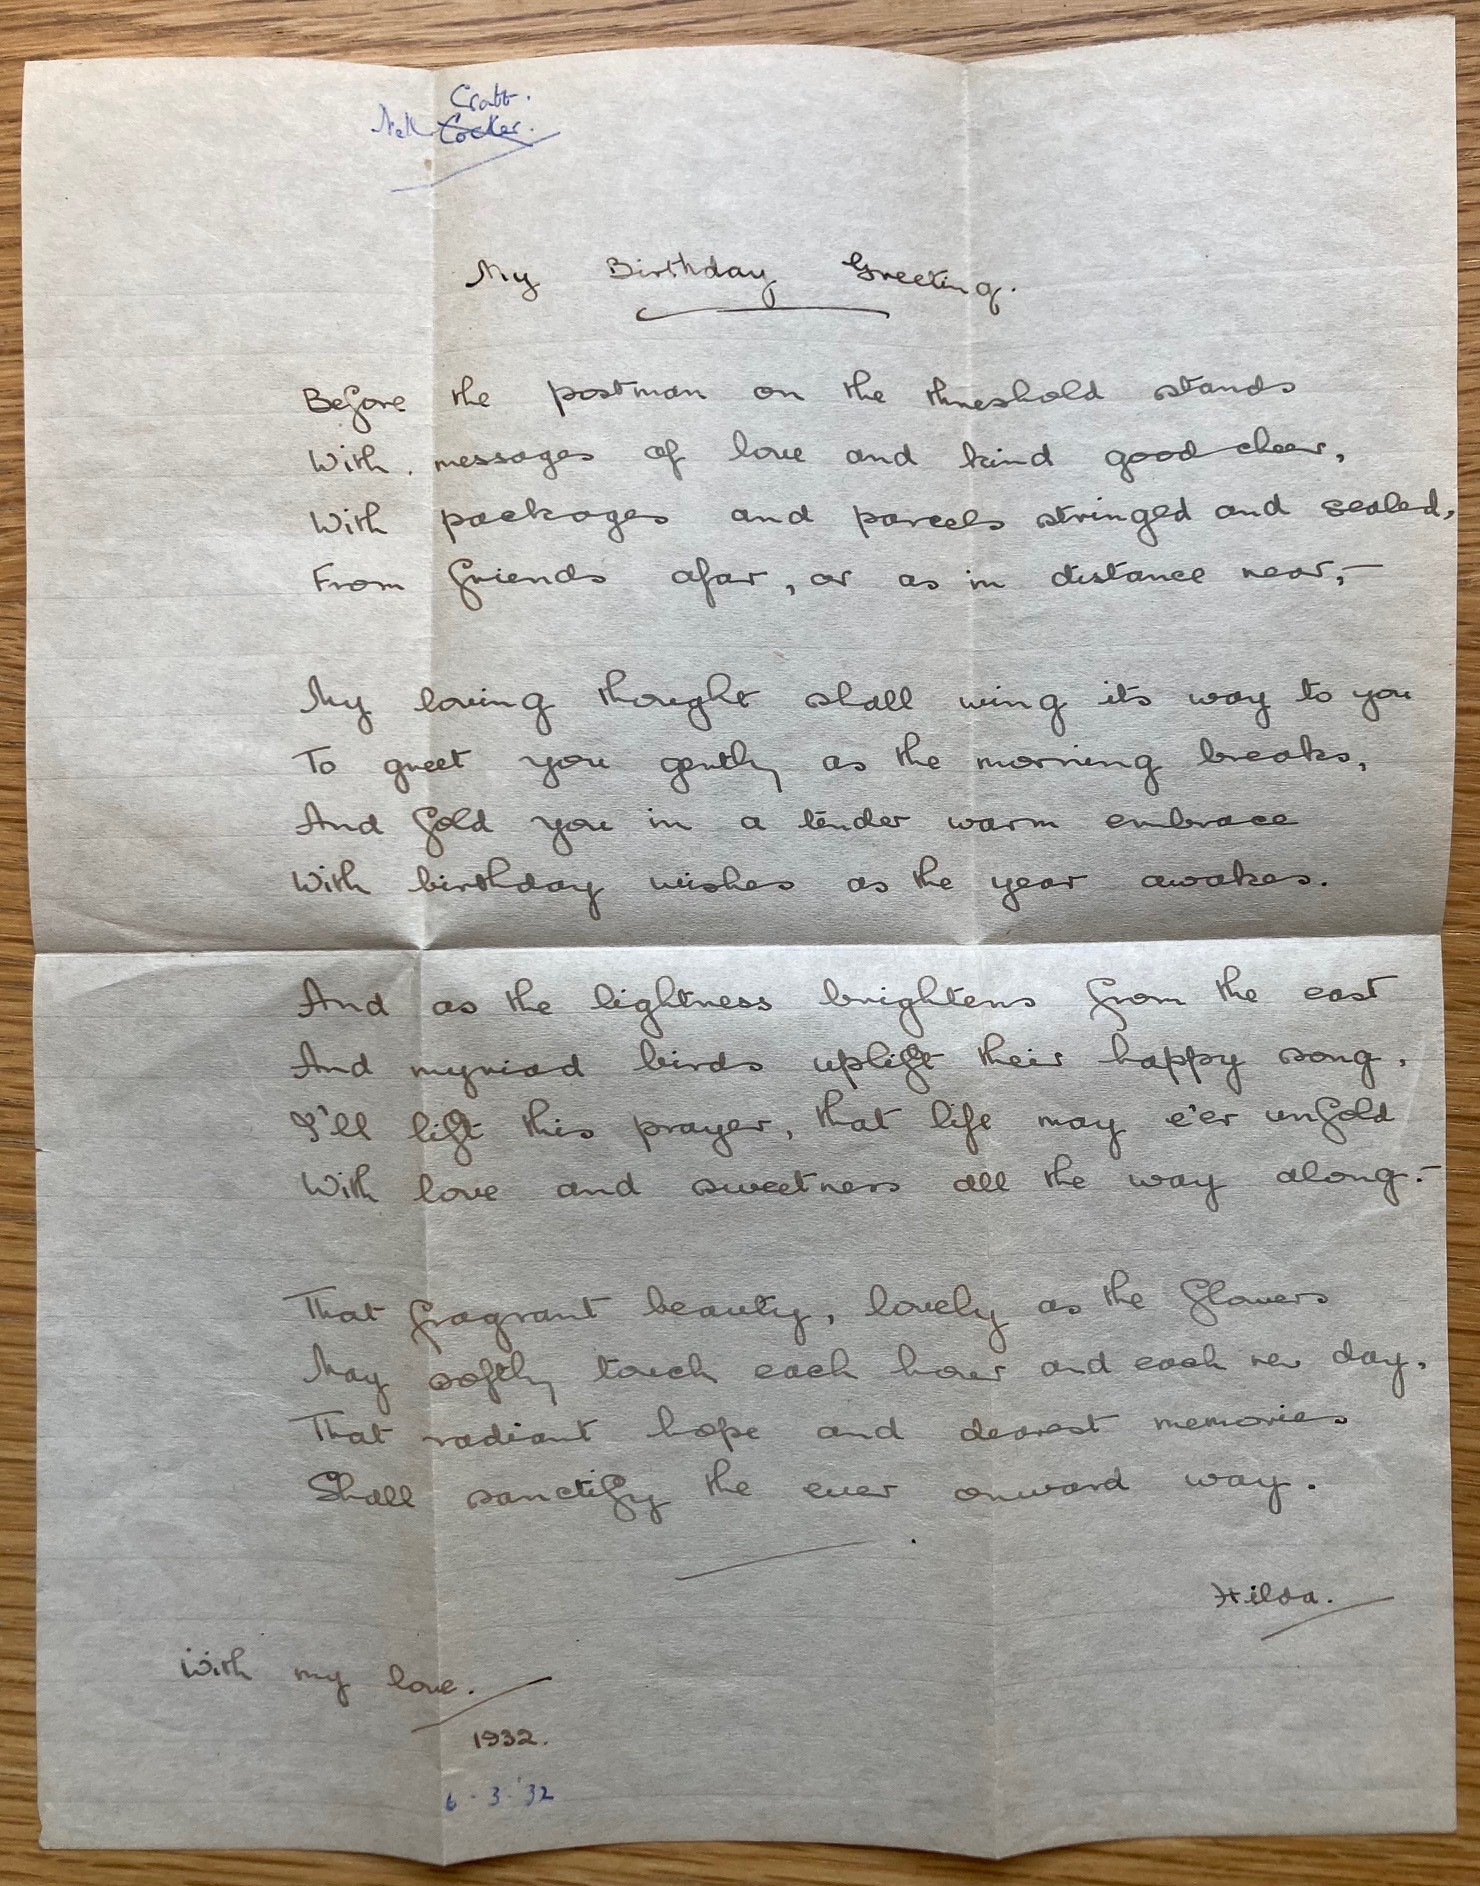 Crabb.
Nell Cocker.
My Birthday Greeting.
Before the postman on the threshold stands
With messages of love and kind good cheer,
With packages and parcels stringed and sealed,
From friends afar, or as in distance near,—
My loving thought shall wing its way to you
To greet you gently as the morning breaks,
And fold you in a tender warm embrace
With birthday wishes as the year awakes.
And as the lightness brightens from the east
And myriad birds uplift their happy song,
I'll lift this prayer, that life may e'er unfold
With love and sweetness all the way along:—
That fragrant beauty, lovely as the flowers
May softly touch each hour and each new day,
That radiant hope and dearest memories
Shall sanctify the ever onward way.
Hilda.
With my love.
1932.
6-3-'32